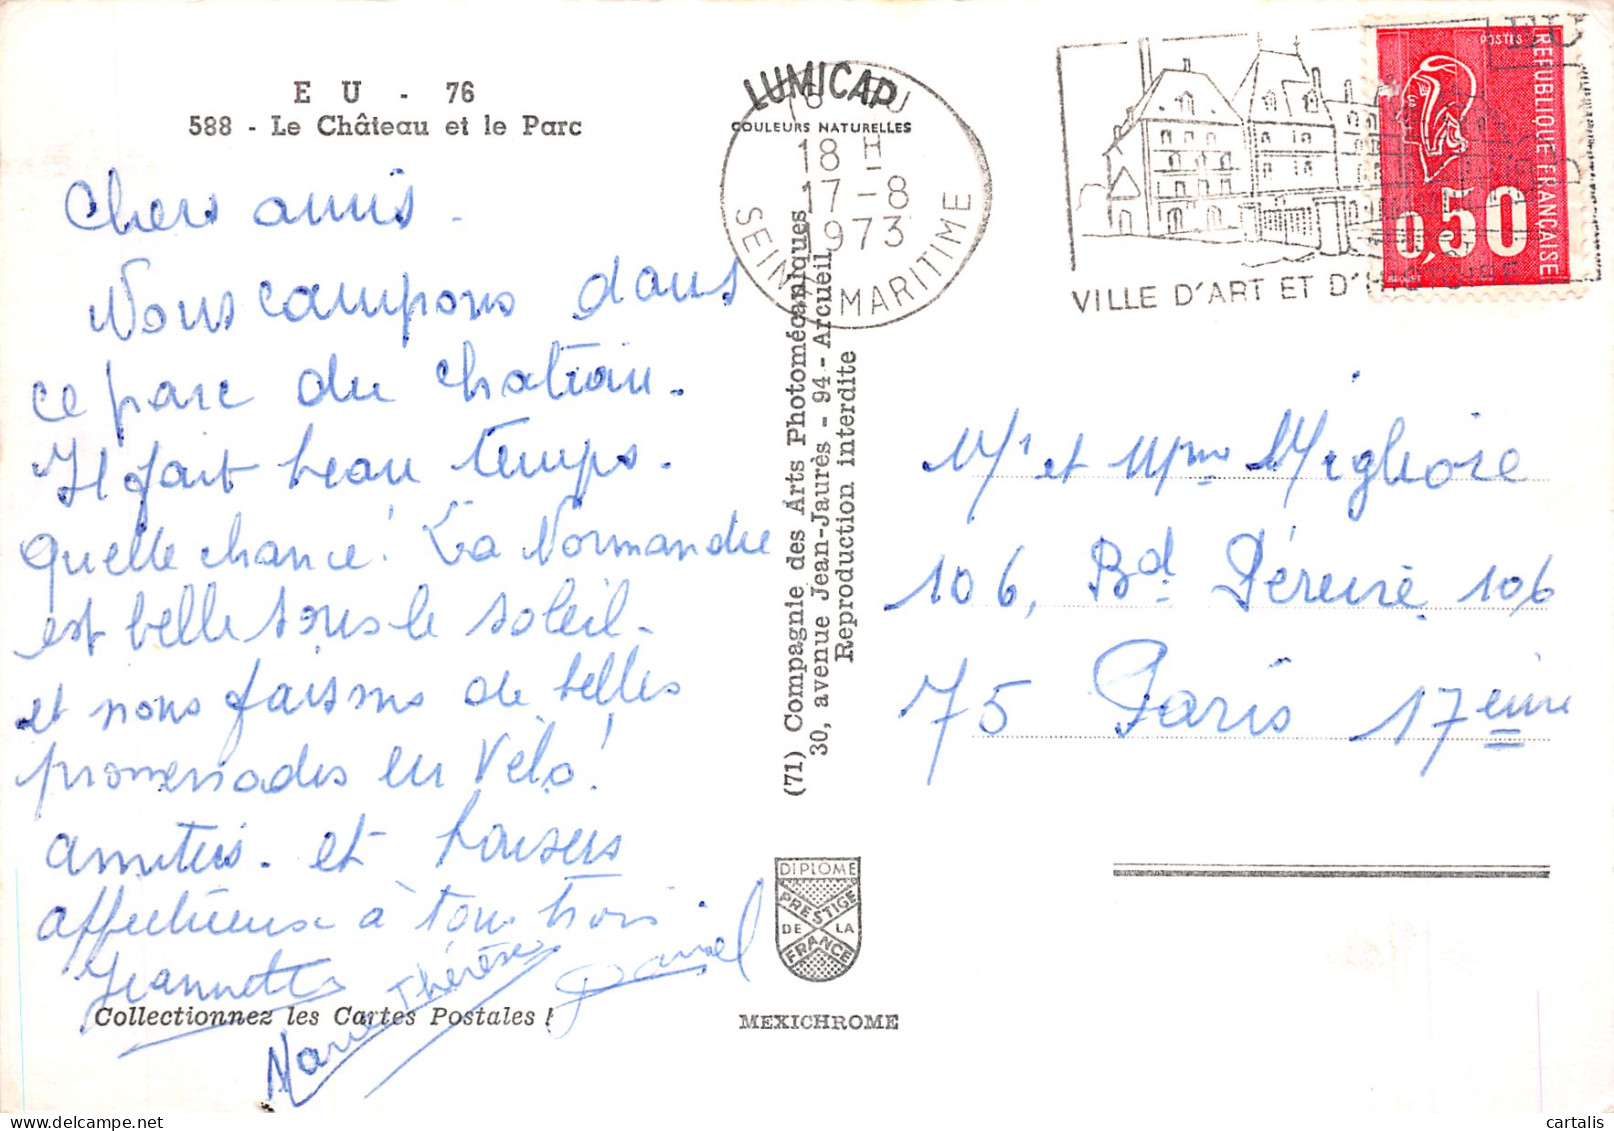 E U - 76
588 - Le Château et le Parc
Chers amis -
Nous campons dans
ce parc du chateau.
Il fait beau temps.
quelle chance! La Normandie
est belle sous le soleil -
et nous faisons de belles
promenades en vélo!
amitiés. et baisers
affectueux à tous trois.
Jeannette
Marie Thérèse
Daniel
Collectionnez les Cartes Postales !
LUMICAP
COULEURS NATURELLES
18 H
17-8
1973
SEINE MARITIME
(71) Compagnie des Arts Photomécaniques
30, avenue Jean-Jaurès - 94 - Arcueil
Reproduction interdite
DIPLOME
PRESTIGE
DE LA
FRANCE
MEXICHROME
EU
VILLE D'ART ET D'HISTOIRE
POSTES
REPUBLIQUE FRANÇAISE
0,50
Mr et Mme Migliore
106, Bd. Péreire 106
75 Paris 17ème
cartalis